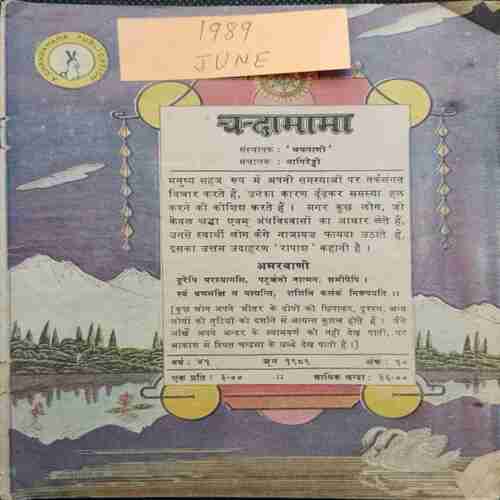 1989
JUNE
CHANDAMAMA PUBLICATION
चन्दामामा
संस्थापक : 'चक्रपाणी'
संचालक : नागिरेड्डी
मनुष्य सहज रूप में अपनी समस्याओं पर तर्कसंगत
विचार करते हैं, उनका कारण ढूंढ़कर समस्या हल
करने की कोशिश करते हैं । मगर कुछ लोग, जो
केवल श्रद्धा एवम् अंधविश्वासों का आधार लेते हैं,
उनसे स्वार्थी लोग कैसे नाजायज फायदा उठाते हैं,
इसका उत्तम उदाहरण कहानी है ।
अमरवाणी
दूरेपि परस्यागसि, पटुर्जनो नात्मनः समीपेपि ।
स्वं व्रणमक्षि न पश्यन्ति, शशिनि कलंकं निरूपयति ।।
[कुछ लोग अपने भीतर के दोषों को छिपाकर, दूरस्थ, अन्य
लोगों की त्रुटियों को दर्शाने में अत्यंत कुशल होते हैं । जैसे
आँखें अपने अन्दर के को नहीं देख पातीं, पर
आकाश में स्थित चन्द्रमा के धब्बे देख पाती हैं ।]
वर्ष : ४१ जून १९८९ अंक : १०
एक प्रति : ३-०० :: वार्षिक चन्दा : ३६-००